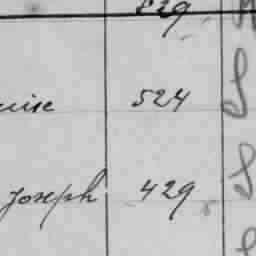 829
uise 524 S
Joseph 429 S